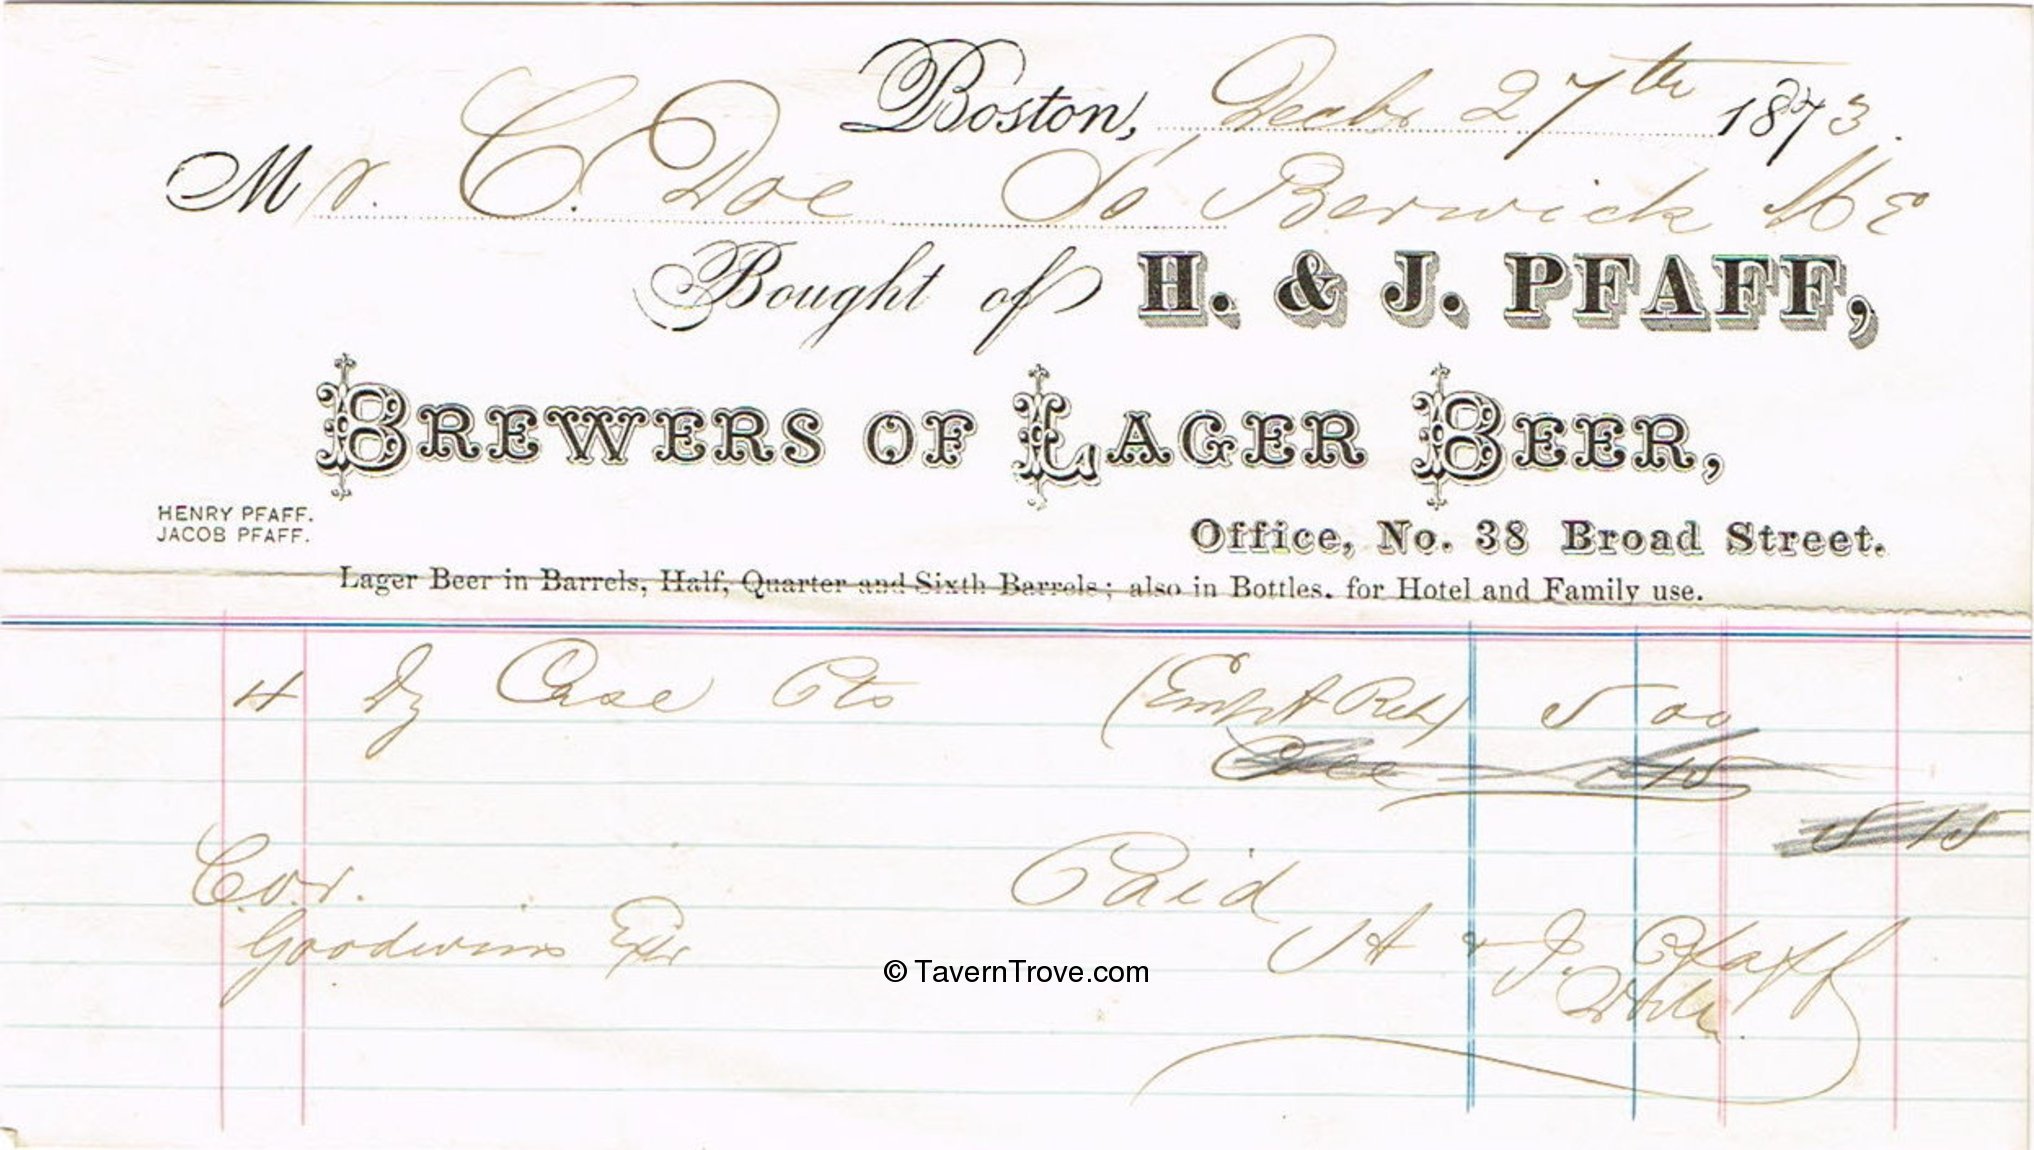 Boston, Decbr 27th 1873.
Mr. C. Doe So Berwick Me
Bought of H. & J. PFAFF,
BREWERS OF LAGER BEER,
HENRY PFAFF.
JACOB PFAFF.
Office, No. 38 Broad Street.
Lager Beer in Barrels, Half, Quarter and Sixth Barrels; also in Bottles. for Hotel and Family use.
4 Dz Case Pts (Empt Ret) 5 00
15
5 15
C.o.r. Paid
Goodwins Exr H & J. Pfaff
© TavernTrove.com